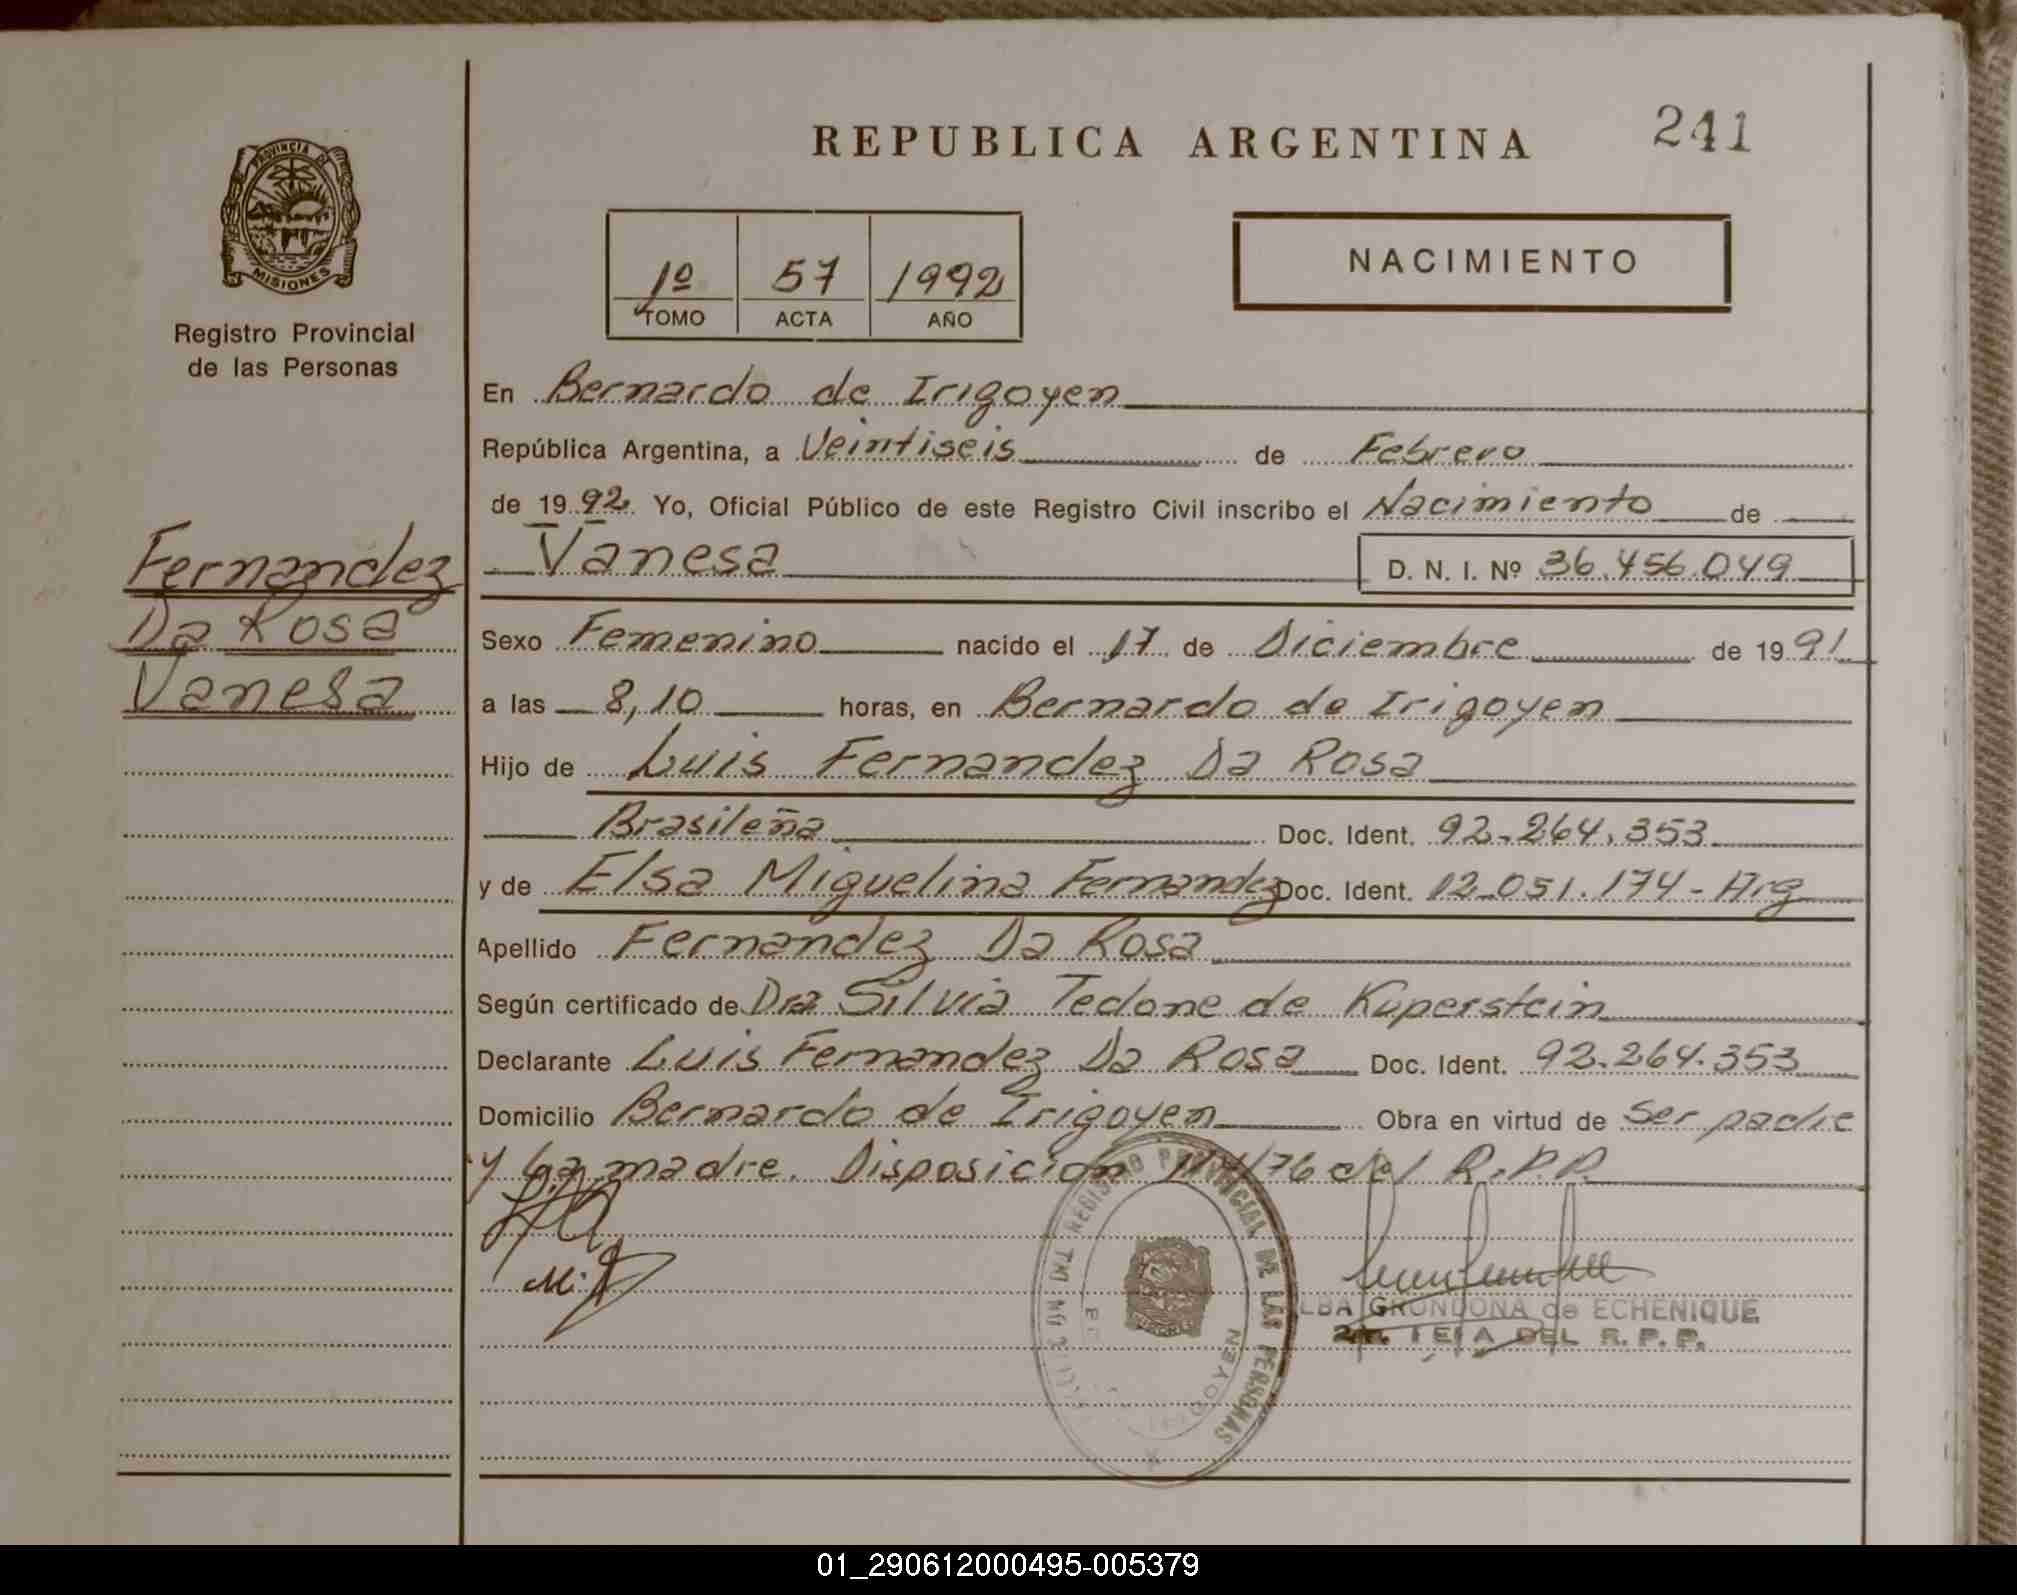 REPUBLICA ARGENTINA 241
PROVINCIA DE
MISIONES
Registro Provincial
de las Personas
1º 57 1992
TOMO ACTA AÑO
NACIMIENTO
En Bernardo de Irigoyen
República Argentina, a Veintiseis de Febrero
de 1992 Yo, Oficial Público de este Registro Civil inscribo el Nacimiento de
Vanesa D. N. I. Nº 36.456.049
Fernandez
Da Rosa
Vanesa
Sexo Femenino nacido el 17 de Diciembre de 1991
a las 8,10 horas, en Bernardo de Irigoyen
Hijo de Luis Fernandez Da Rosa
Brasileña Doc. Ident. 92.264.353
y de Elsa Miguelina Fernandez Doc. Ident. 12.051.174 - Arg
Apellido Fernandez Da Rosa
Según certificado de Dra Silvia Tedone de Kuperstein
Declarante Luis Fernandez Da Rosa Doc. Ident. 92.264.353
Domicilio Bernardo de Irigoyen Obra en virtud de Ser padre
y La madre. Disposicion /76 del R.P.P.
REGISTRO PROVINCIAL DE LAS PERSONAS
IGOYEN
LBA GRONDONA de ECHENIQUE
DEL R. P. P.
01_290612000495-005379